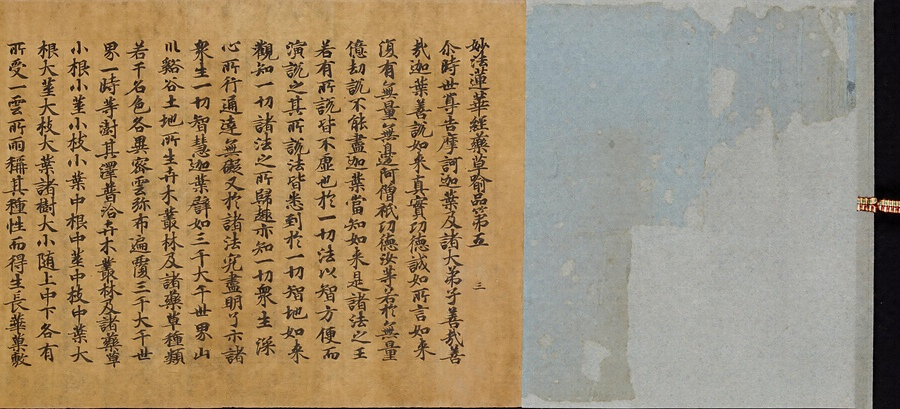 妙法蓮華經藥草喻品第五
三
尒時世尊告摩訶迦葉及諸大弟子善哉善
哉迦葉善說如來真實功德誠如所言如來
復有無量無邊阿僧祇功德汝等若於無量
億劫說不能盡迦葉當知如來是諸法之王
若有所說皆不虛也於一切法以智方便而
演說之其所說法皆悉到於一切智地如來
觀知一切諸法之所歸趣亦知一切衆生深
心所行通達無礙又於諸法究盡明了示諸
衆生一切智慧迦葉譬如三千大千世界山
川谿谷土地所生卉木叢林及諸藥草種類
若干名色各異密雲弥布遍覆三千大千世
界一時等澍其澤普洽卉木叢林及諸藥草
小根小莖小枝小葉中根中莖中枝中葉大
根大莖大枝大葉諸樹大小随上中下各有
所受一雲所雨稱其種性而得生長華菓敷